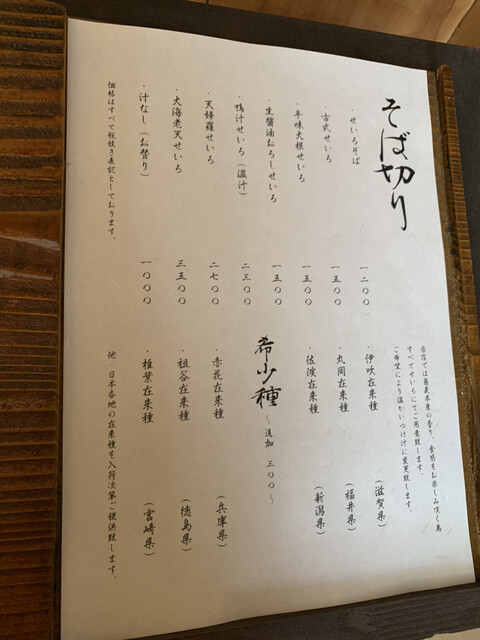 そば切り
・せいろそば 一二〇〇
・古式せいろ 一五〇〇
・辛味大根せいろ 一五〇〇
・生醤油おろしせいろ 一五〇〇
・鴨汁せいろ（温汁） 二三〇〇
・天婦羅せいろ 二七〇〇
・大海老天せいろ 三五〇〇
・汁なし（お替り） 一〇〇〇
価格はすべて税抜き表記としております。
当店では蕎麦本来の香り、食感をお楽しみ頂く為
すべてせいろにてご用意致します。
ご希望により温かいつけ汁に変更致します。
・伊吹在来種 （滋賀県）
・丸岡在来種 （福井県）
・佐渡在来種 （新潟県）
希少種 〜追加 三〇〇〜
・赤花在来種 （兵庫県）
・祖谷在来種 （徳島県）
・椎葉在来種 （宮崎県）
他・日本各地の在来種を入荷次第ご提供致します。